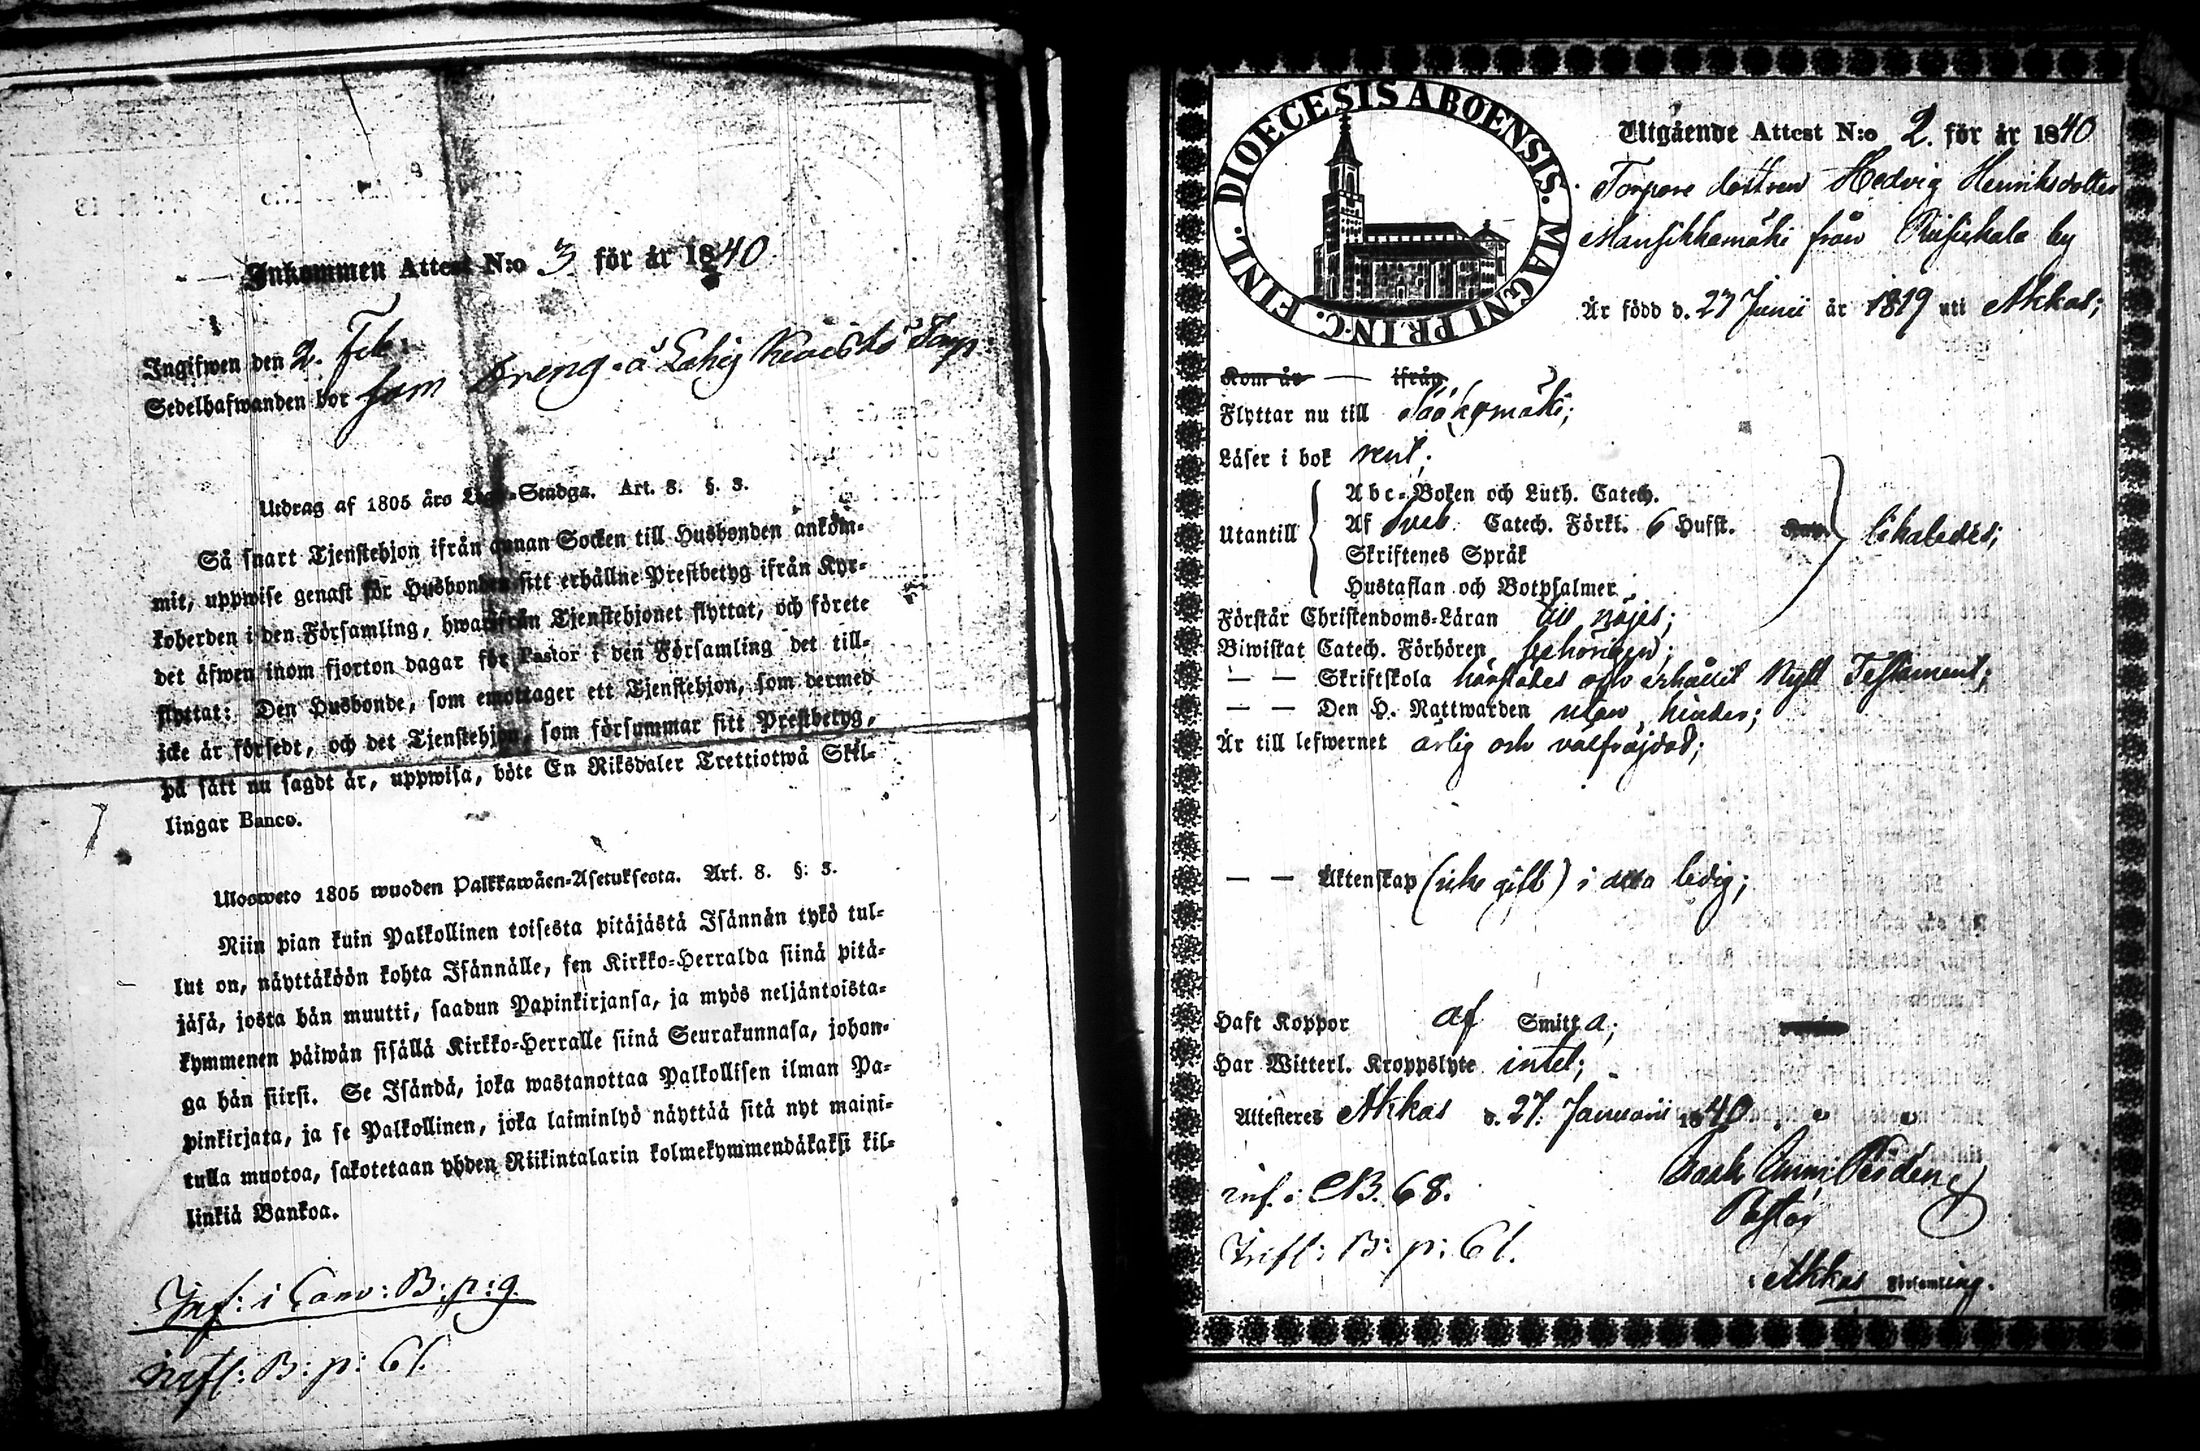 Inkommen Attest N:o 3 för år 1840
Ingifwen den 2. Feb:
Sedelhafwanden bor som Dreng å Torp
Utdrag af 1805 års Lego-Stadga. Art. 8. §. 3.
Så snart Tjenstehjon ifrån annan Socken till Husbonden ankom-
mit, uppwise genast för Husbonden sitt erhållne Prestbetyg ifrån Kyr-
koherden i den Församling, hwarifrån Tjenstehjonet flyttat, och förete
det äfwen inom fjorton dagar för Pastor i den Församling det till-
flyttat: Den Husbonde, som emottager ett Tjenstehjon, som dermed
icke är försedt, och det Tjenstehjon, som försummar sitt Prestbetyg,
på sätt nu sagdt är, uppwisa, böte En Riksdaler Trettiotwå Skil-
lingar Banco.
Ulosweto 1805 wuoden Palkkawäen-Asetuksesta. Art. 8. §: 3.
Niin pian kuin Palkollinen toisesta pitäjästä Isännän tykö tul-
lut on, näyttäköön kohta Isännälle, sen Kirkko-Herralda siinä pitä-
jäsä, josta hän muutti, saadun Papinkirjansa, ja myös neljäntoista-
kymmenen päiwän sisällä Kirkko-Herralle siinä Seurakunnasa, johon-
ga hän siirsi. Se Isändä, joka wastanottaa Palkollisen ilman Pa-
pinkirjata, ja se Palkollinen, joka laiminlyö näyttää sitä nyt maini-
tulla muotoa, sakotetaan yhden Riikintalarin kolmekymmendäkaksi kil-
linkiä Bankoa.
Inf: i Com: B: p: 9.
Infl: B: p: 61.
DIOECESIS ABOENSIS. MAGNI PRINC. FINL.
Utgående Attest N:o 2. för år 1840
Torpare dottren Hedvig Henriksdotter
Mansikkamäki från by
Är född d. 27 Junii år 1819 uti Akkas;
Kom år — ifrån
Flyttar nu till Sääxmäki;
Läser i bok rent;
Utantill
Abc-Boken och Luth. Catech.
Af Sveb. Catech. Förkl. 6 Hufst.
Skriftenes Språk
Hustaflan och Botpsalmer
likaledes;
Förstår Christendoms-Läran till nöjes;
Biwistat Catech. Förhören behörigen;
— — Skriftskola härstädes och erhållit Nytt Testament;
— — Den H. Nattwarden utan hinder;
Är till lefwernet ärlig och välfräjdad;
— — Äktenskap (icke gift) i detta ledig;
Haft Koppor af Smitta;
Har Witterl. Kroppslyte intet;
Attesteres Akkas d. 27. Januarii 1840.
inf.: CB. 68.
Infl: B: p: 61.
Pastor
i Akkas Församling.